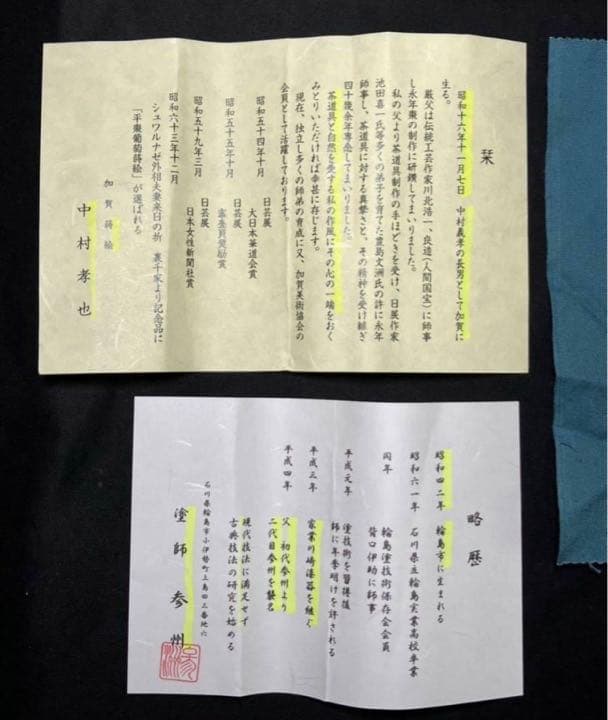 栞
昭和十六年十一月七日 中村義孝の長男として加賀に
生る。
厳父は伝統工芸作家川北浩一、良造(人間国宝)に師事
し永年棗の制作に研鑽してまいりました。
私の父より茶道具制作の手ほどきを受け、日展作家
池田喜一氏等多くの弟子を育てた豊島文洲氏の許に永年
師事し、茶道具に対する真摯さと、その精神を受け継ぎ
四十幾余年専念してまいりました。
茶道具と自然を愛する私の作風にその心の一端をおく
みとりいただければ幸甚に存じます。
現在、独立し多くの師弟の育成に又、加賀美術協会の
会員として活躍しております。
昭和五十四年十月 日芸展
大日本茶道会賞
昭和五十五年十月 日芸展
審査員奨励賞
昭和五十九年三月 日芸展
日本女性新聞社賞
昭和六十三年十二月
シュワルナゼ外相夫妻来日の折 裏千家より記念品に
「平棗葡萄蒔絵」が選ばれる
加賀蒔絵
中村孝也
略歴
昭和四二年 輪島市に生まれる
昭和六一年 石川県立輪島実業高校卒業
同年 輪島塗技術保存会会員
背口伊助に師事
平成元年 塗技術を習得後
師に年季明けを許される
平成三年 家業川崎漆器を継ぐ
平成四年 父 初代参州より
二代目参州を襲名
現代技法に満足せず
古典技法の研究を始める
石川県輪島市小伊勢町上島田三番地六
塗師 参州